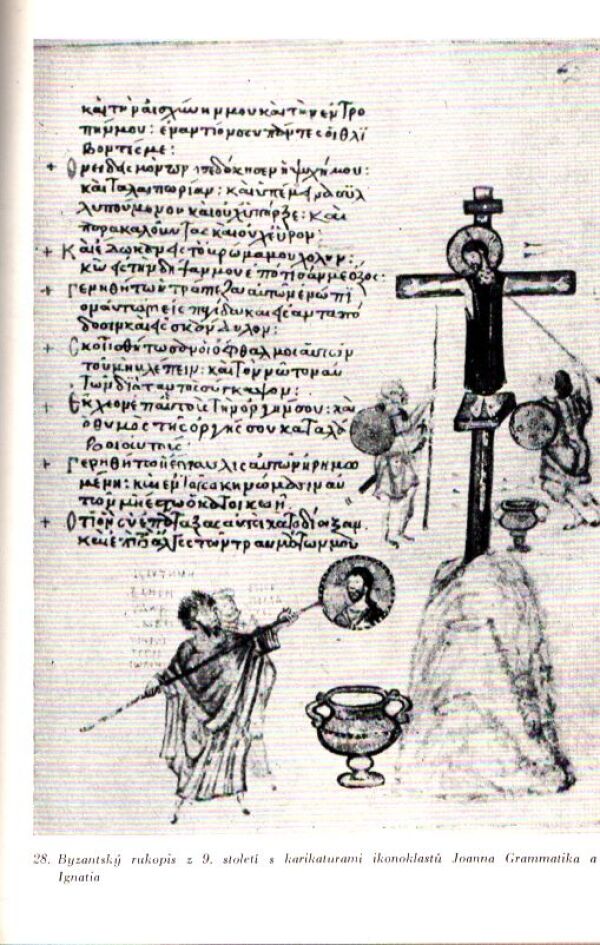 καιτηναισχυνημμουκαιτηνεντρο
πημμου: εναντιονσουπαντεςοιθλι
βοντεςμε:
+ Ονειδισμονπροσεδοκησενηψυχημου:
καιταλαιπωριαν: καιυπεμεινασυλ
λυπουμενονκαιουχυπηρξε: και
παρακαλουντας καιουχευρον:
+ Και εδωκανειςτοβρωμαμουχολην:
και ειςτηνδιψανμουεποτισανμεοξος:
+ Γενηθητωητραπεζααυτωνενωπι
οναυτωνεις παγιδακαιειςανταπο
δοσινκαιειςσκανδαλον:
+ Σκοτισθητωσανοιοφθαλμοιαυτων
τουμηβλεπειν: καιτοννωτοναυ
τωνδιαπαντοςσυγκαμψον:
+ Εκχεονεπαυτουςτηνοργηνσου: και
οθυμοςτηςοργηςσουκαταλα
βοιαυτους:
+ Γενηθητωηεπαυλιςαυτωνηρημω
μενη: καιεντοιςσκηνωμασιναυ
τωνμηεστωοκατοικων:
+ Οτιονσυεπαταξαςαυτοικατεδιωξαν
καιεπιτοαλγοςτωντραυματωνμου
28. Byzantský rukopis z 9. století s karikaturami ikonoklastů Joanna Grammatika a
Ignatia